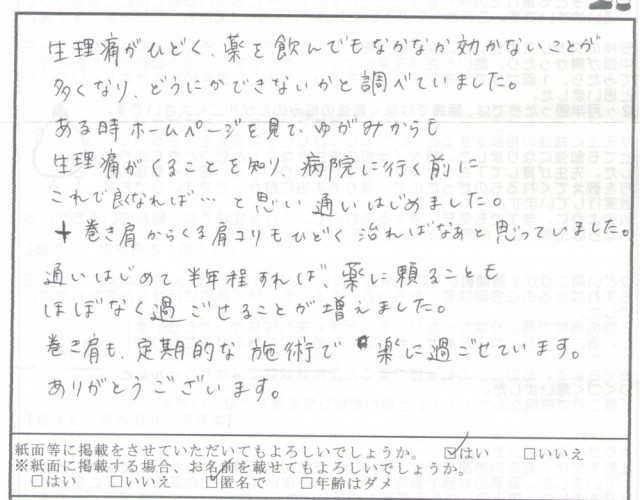 生理痛がひどく、薬を飲んでもなかなか効かないことが
多くなり、どうにかできないかと調べていました。
ある時ホームページを見て、ゆがみからも
生理痛がくることを知り、病院に行く前に
これで良くなれば…と思い通いはじめました。
+巻き肩からくる肩コリもひどく治ればなあと思っていました。
通いはじめて半年程すれば薬に頼ることも
ほぼなく過ごせることが増えました。
巻き肩も、定期的な施術で楽に過ごせています。
ありがとうございます。
紙面等に掲載をさせていただいてもよろしいでしょうか。 ☑はい □いいえ
※紙面に掲載する場合、お名前を載せてもよろしいでしょうか。
□はい □いいえ ☑匿名で □年齢はダメ